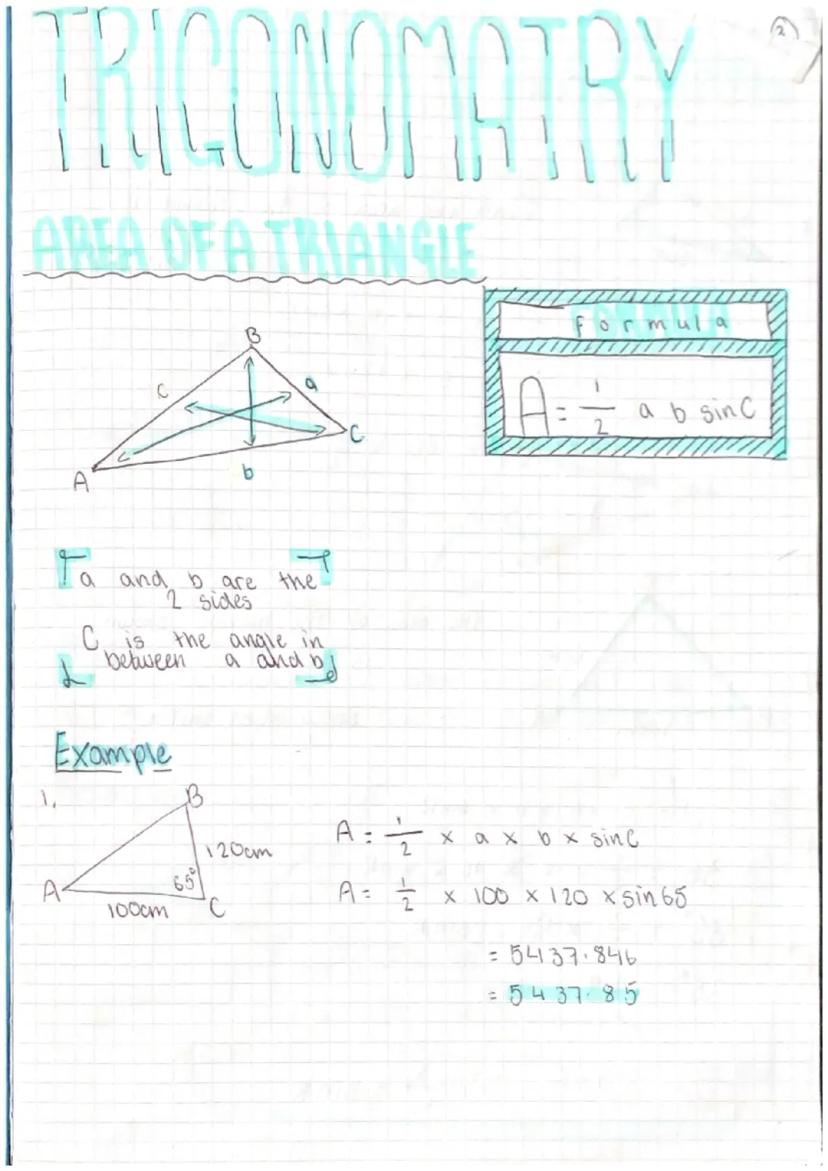 2
TRIGONOMATRY
AREA OF A TRIANGLE
Formula
A = 1/2 a b sinC
B
c
a
C
A
b
a and b are the
2 sides
C is the angle in
between a and b
Example
1.
B
120cm
65°
A
100cm
C
A = 1/2 × a × b × sinC
A = 1/2 × 100 × 120 × sin 65
= 5437.846
= 5437.85